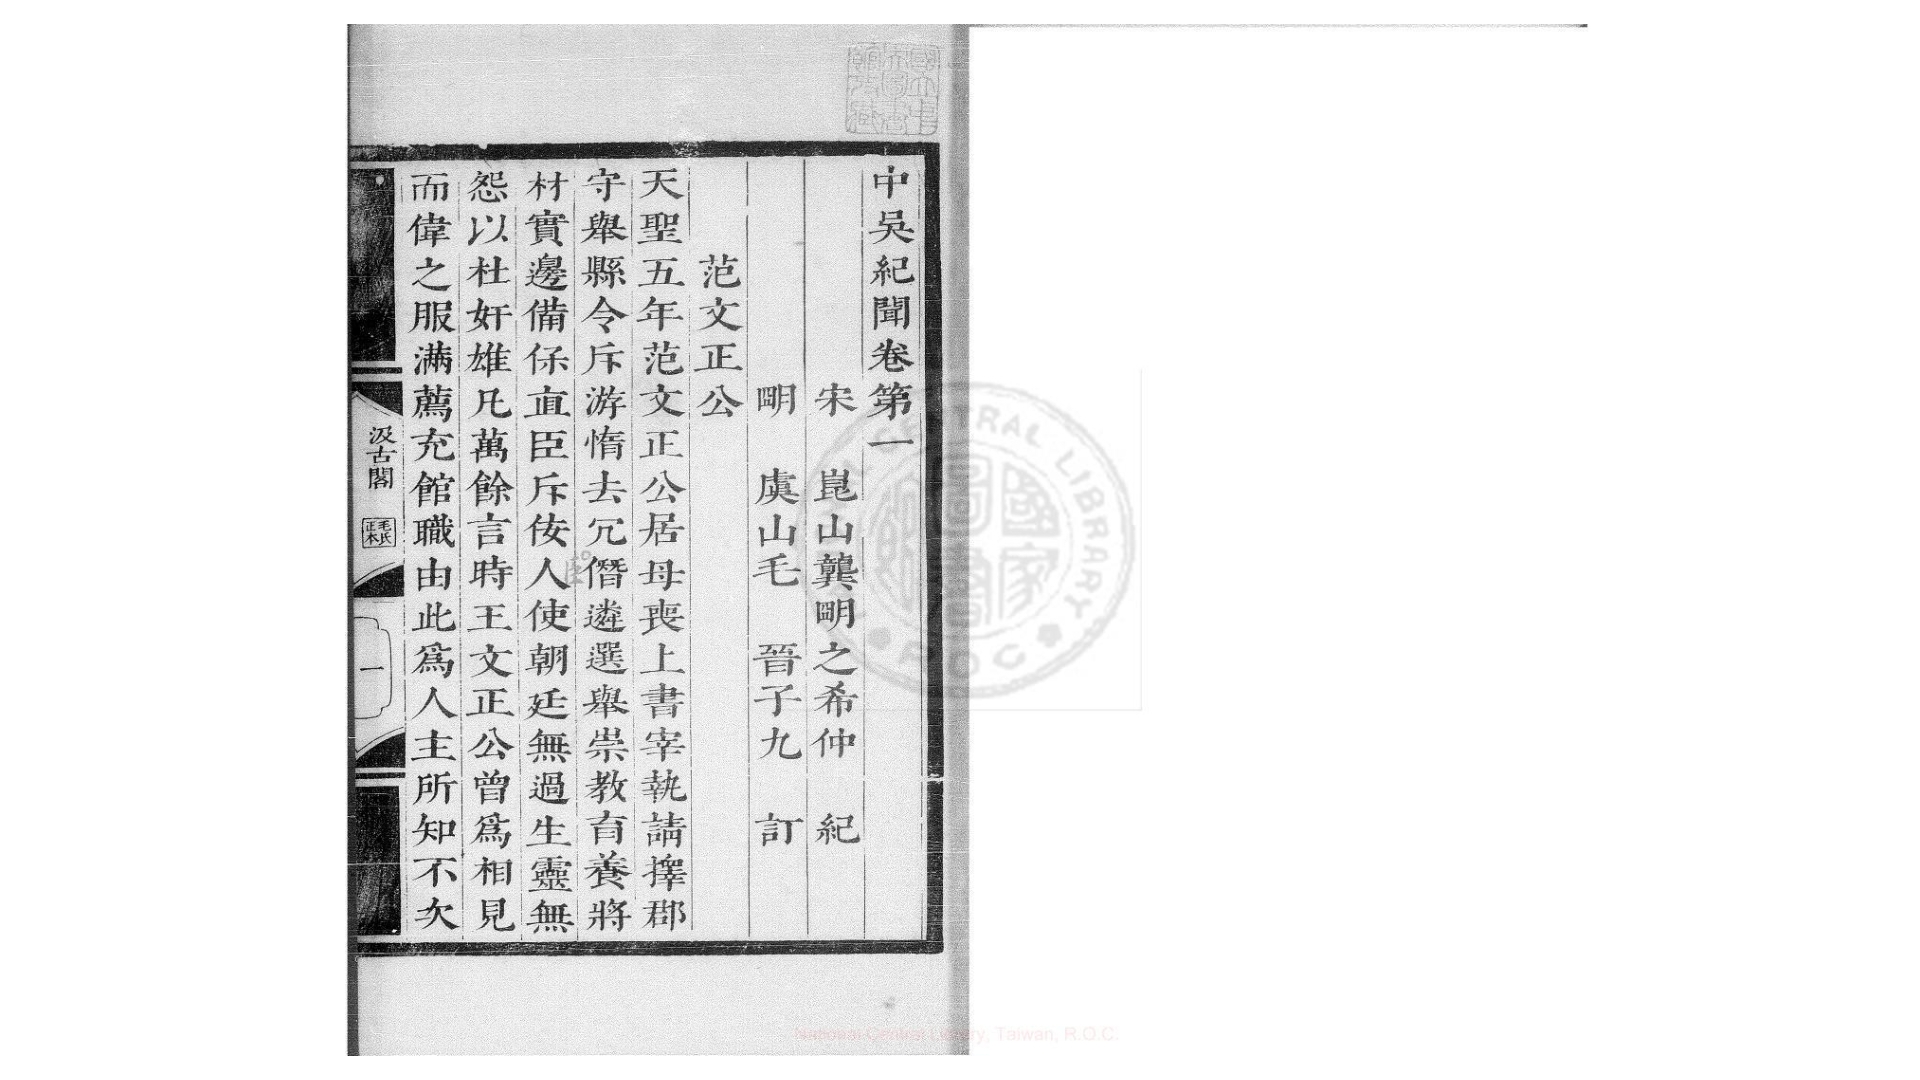 中吳紀聞卷第一
宋 崑山龔明之希仲 紀
明 虞山毛 晉子九 訂
范文正公
天聖五年范文正公居母喪上書宰執請擇郡
守舉縣令斥游惰去冗僭遴選舉崇教育養將
材實邊備保直臣斥佞人使朝廷無過生靈無
怨以杜奸雄凡萬餘言時王文正公曾爲相見
而偉之服滿薦充館職由此爲人主所知不次
汲古閣
毛氏正本
一
國立中央圖書館收藏
NATIONAL CENTRAL LIBRARY
ROC
國家圖書館
National Central Library, Taiwan, R.O.C.